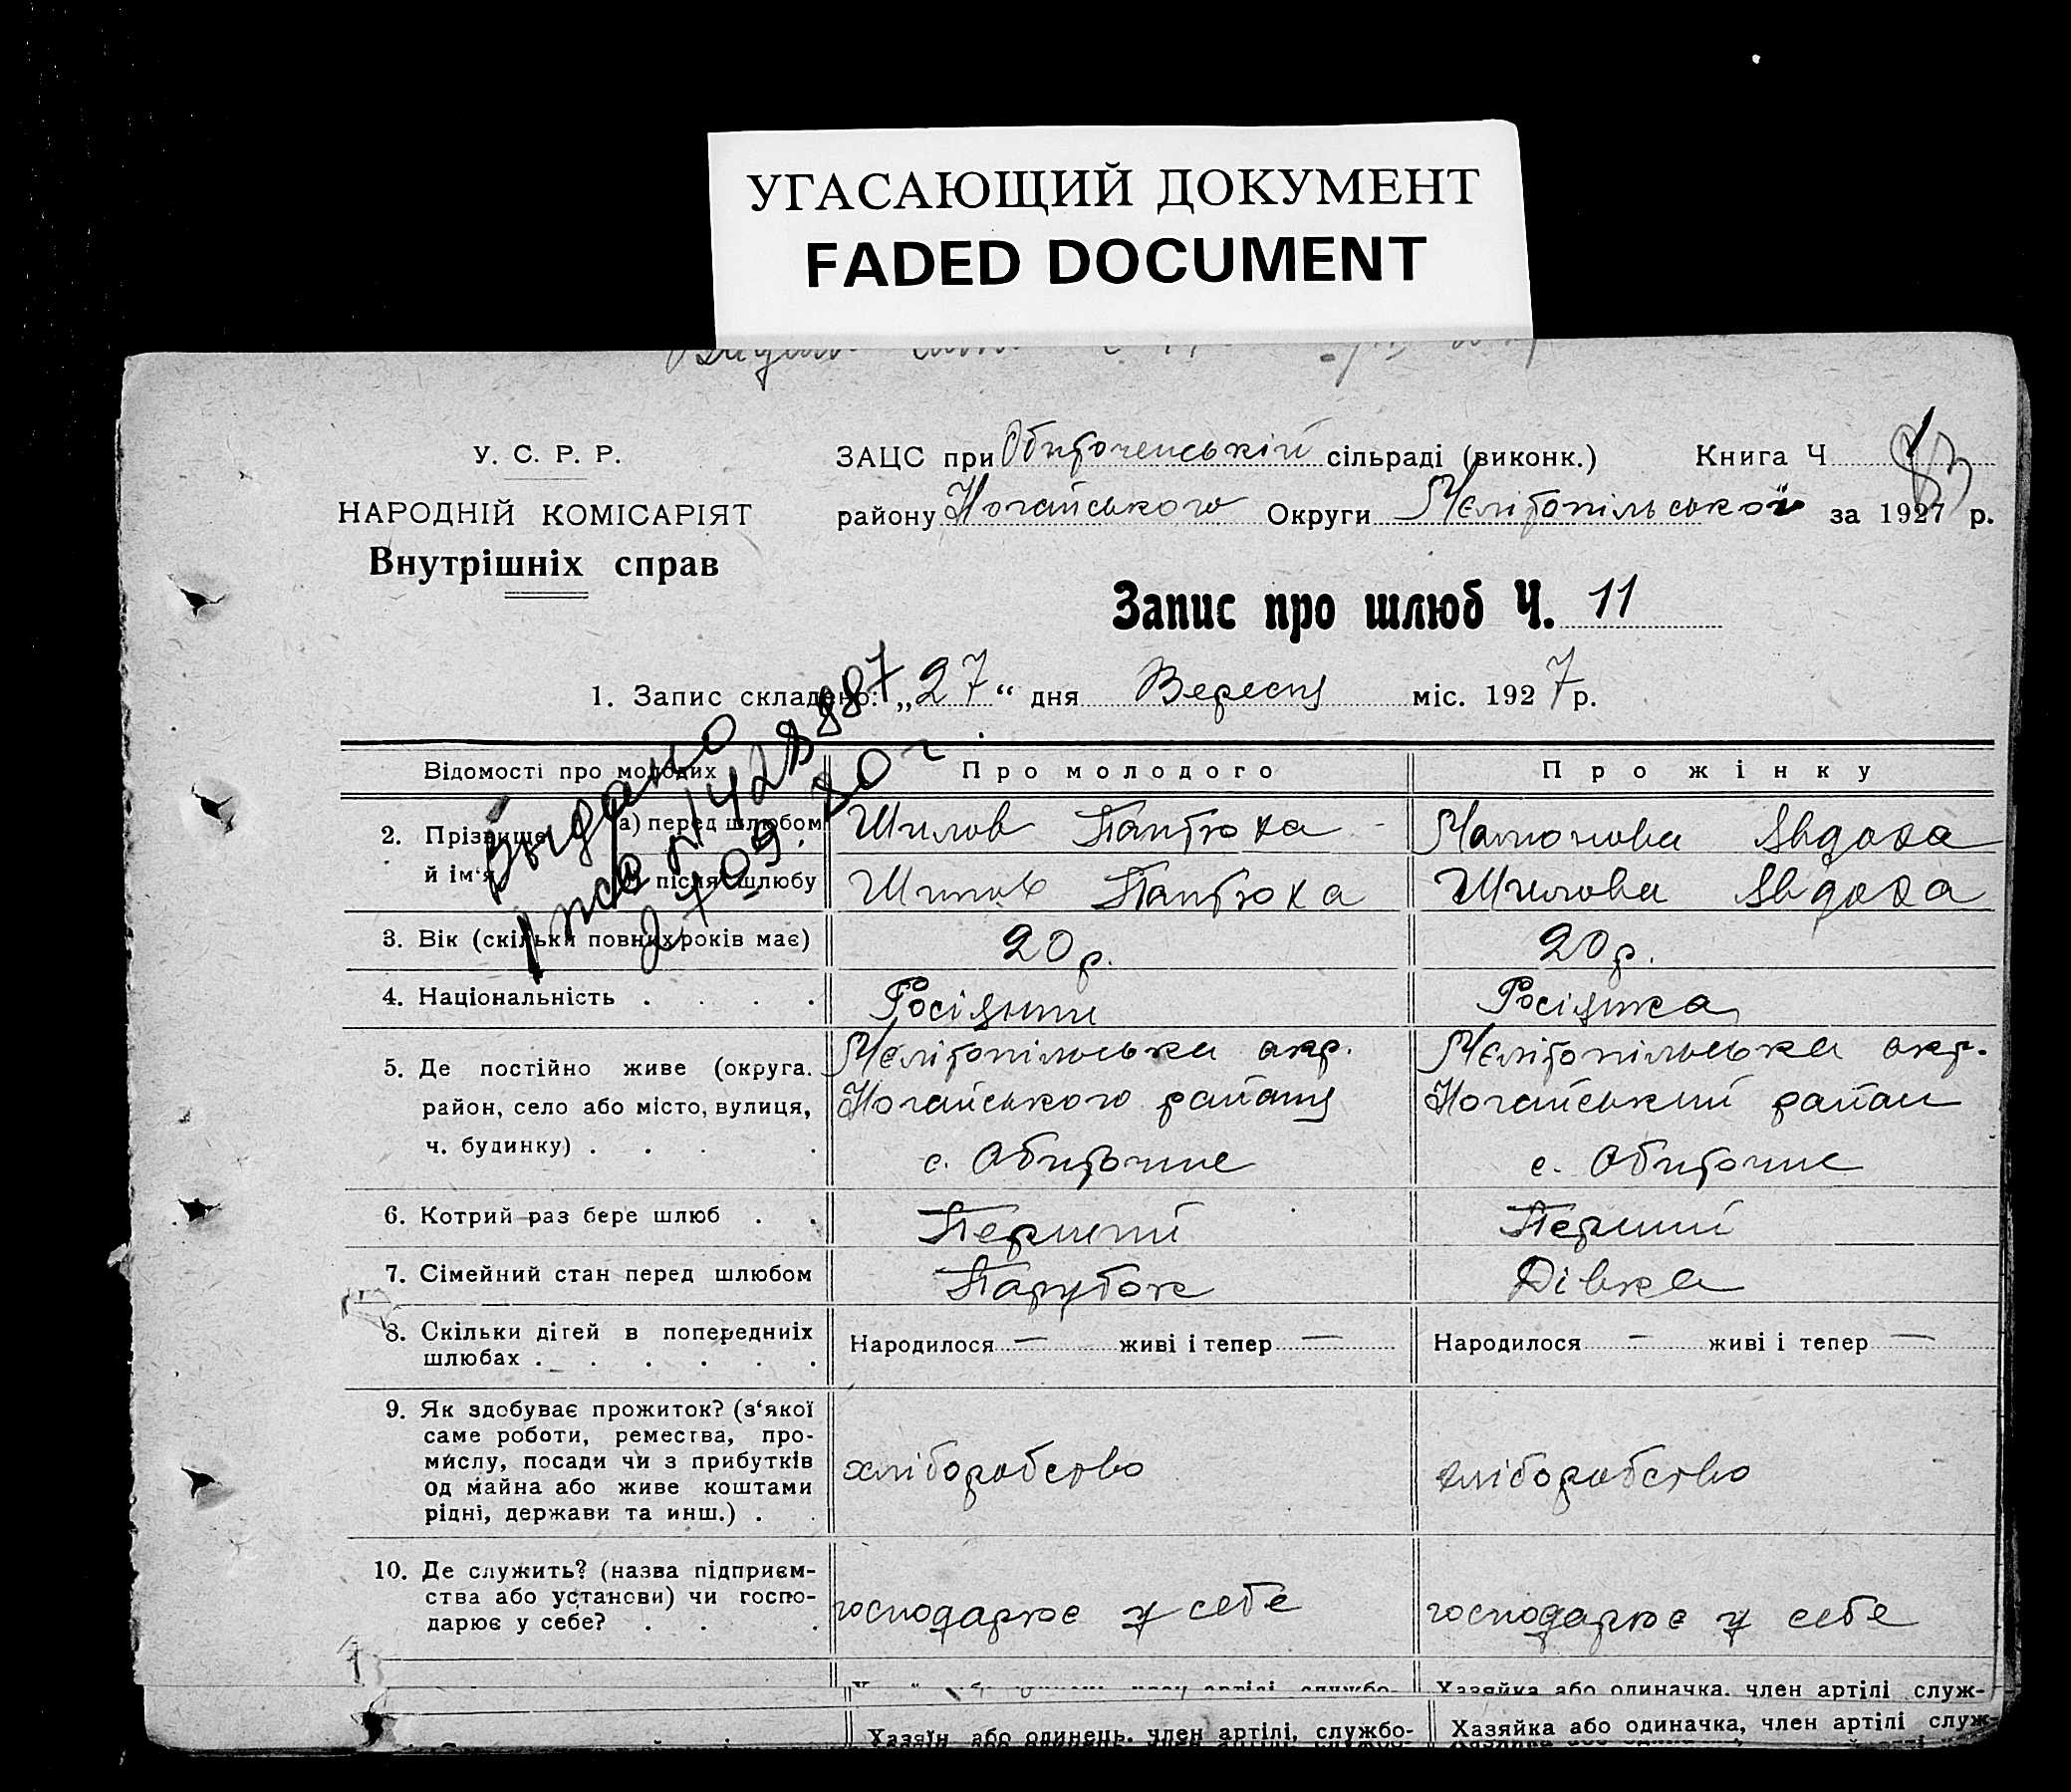 УГАСАЮЩИЙ ДОКУМЕНТ
FADED DOCUMENT
У. С. Р. Р.
НАРОДНІЙ КОМІСАРІЯТ
Внутрішніх справ
ЗАЦС при Обиточенській сільраді (виконк.) Книга Ч
району Ногайського Округи Мелітопільської за 1927 р.
Запис про шлюб Ч. 11
1. Запис складено: „27“ дня Вересня міс. 1927 р.
Відомості про молодих
Про молодого
Про жінку
2. Прізвище й ім‘я
а) перед шлюбом
Шилов Пантюха
Мамонова Явдоха
після шлюбу
Шилов Пантюха
Шилова Явдоха
выдано
27 09 80 г
3. Вік (скільки повних років має)
20 р.
20 р.
4. Національність . . . .
Росіянин
Росіянка
5. Де постійно живе (округа.
район, село або місто, вулиця,
ч. будинку) . . . .
Мелітопільська окр.
Ногайського района
с. Обиточне
Мелітопільська окр.
Ногайський район
с. Обиточне
6. Котрий раз бере шлюб . .
Перший
Перший
7. Сімейний стан перед шлюбом
Парубок
Дівка
8. Скільки дітей в попередниіх
шлюбах . . . . . .
Народилося — живі і тепер —
Народилося — живі і тепер —
9. Як здобуває прожиток? (з‘якої
саме роботи, ремества, про-
мислу, посади чи з прибутків
од майна або живе коштами
рідні, держави та инш.) .
хліборобство
хліборобство
10. Де служить? (назва підприєм-
ства або установи) чи госпо-
дарює у себе? . . .
господарює у себе
господарює у себе
Хазяйка або одиначка, член артілі служ-
Хазяїн або одинець, член артілі, службо-
Хазяйка або одиначка, член артілі служ-